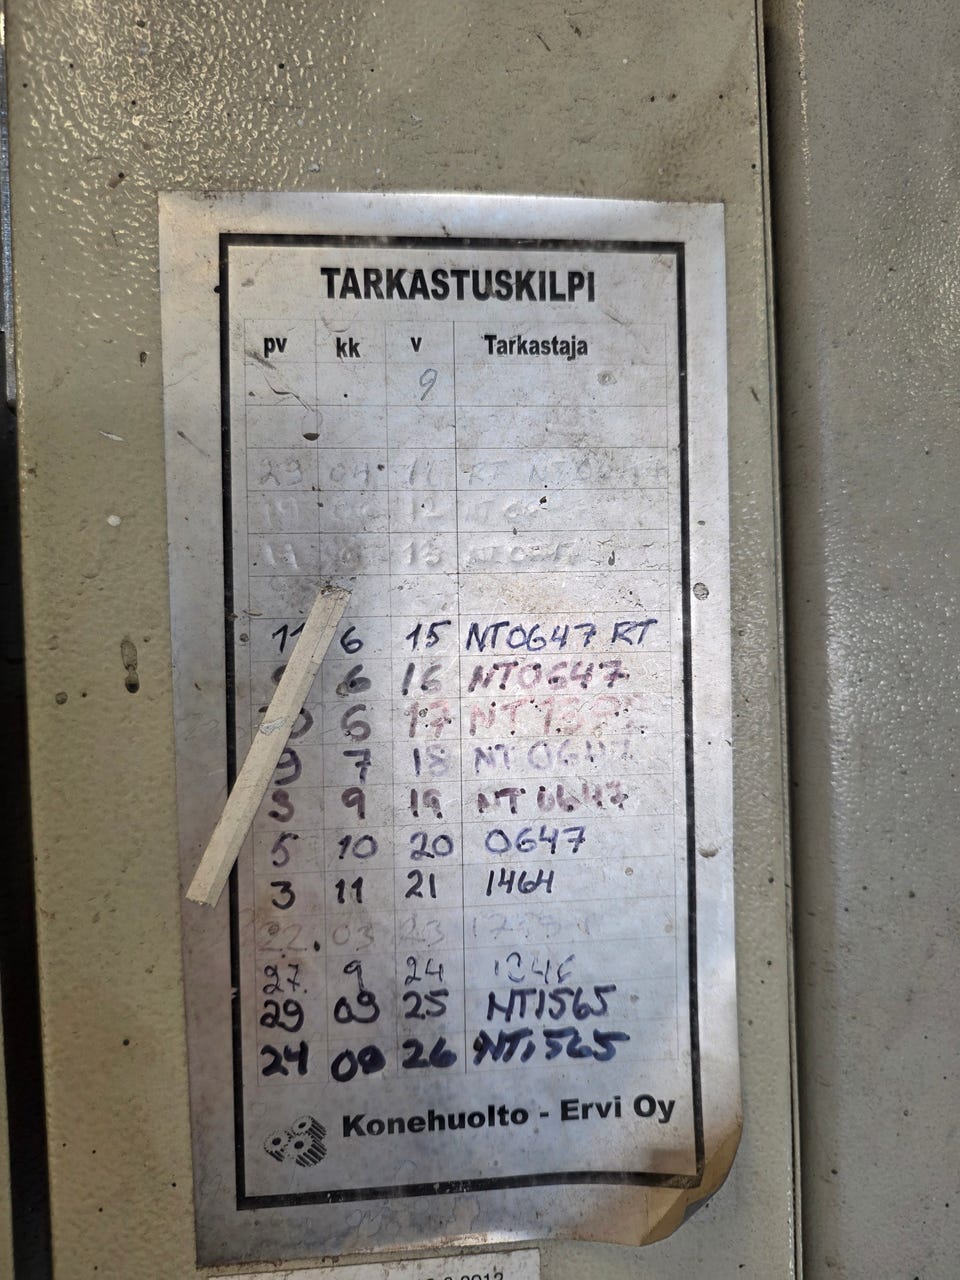 TARKASTUSKILPI
pv kk v Tarkastaja
9
29 04 11 RT
19 12
11 13
11 6 15 NT0647 RT
6 16 NT0647
6 17 NT
9 7 18 NT 0647
3 9 19 NT 0647
5 10 20 0647
3 11 21 1464
22. 03 23
27. 9 24
29 09 25 NT1565
24 09 26 NT1565
Konehuolto - Ervi Oy